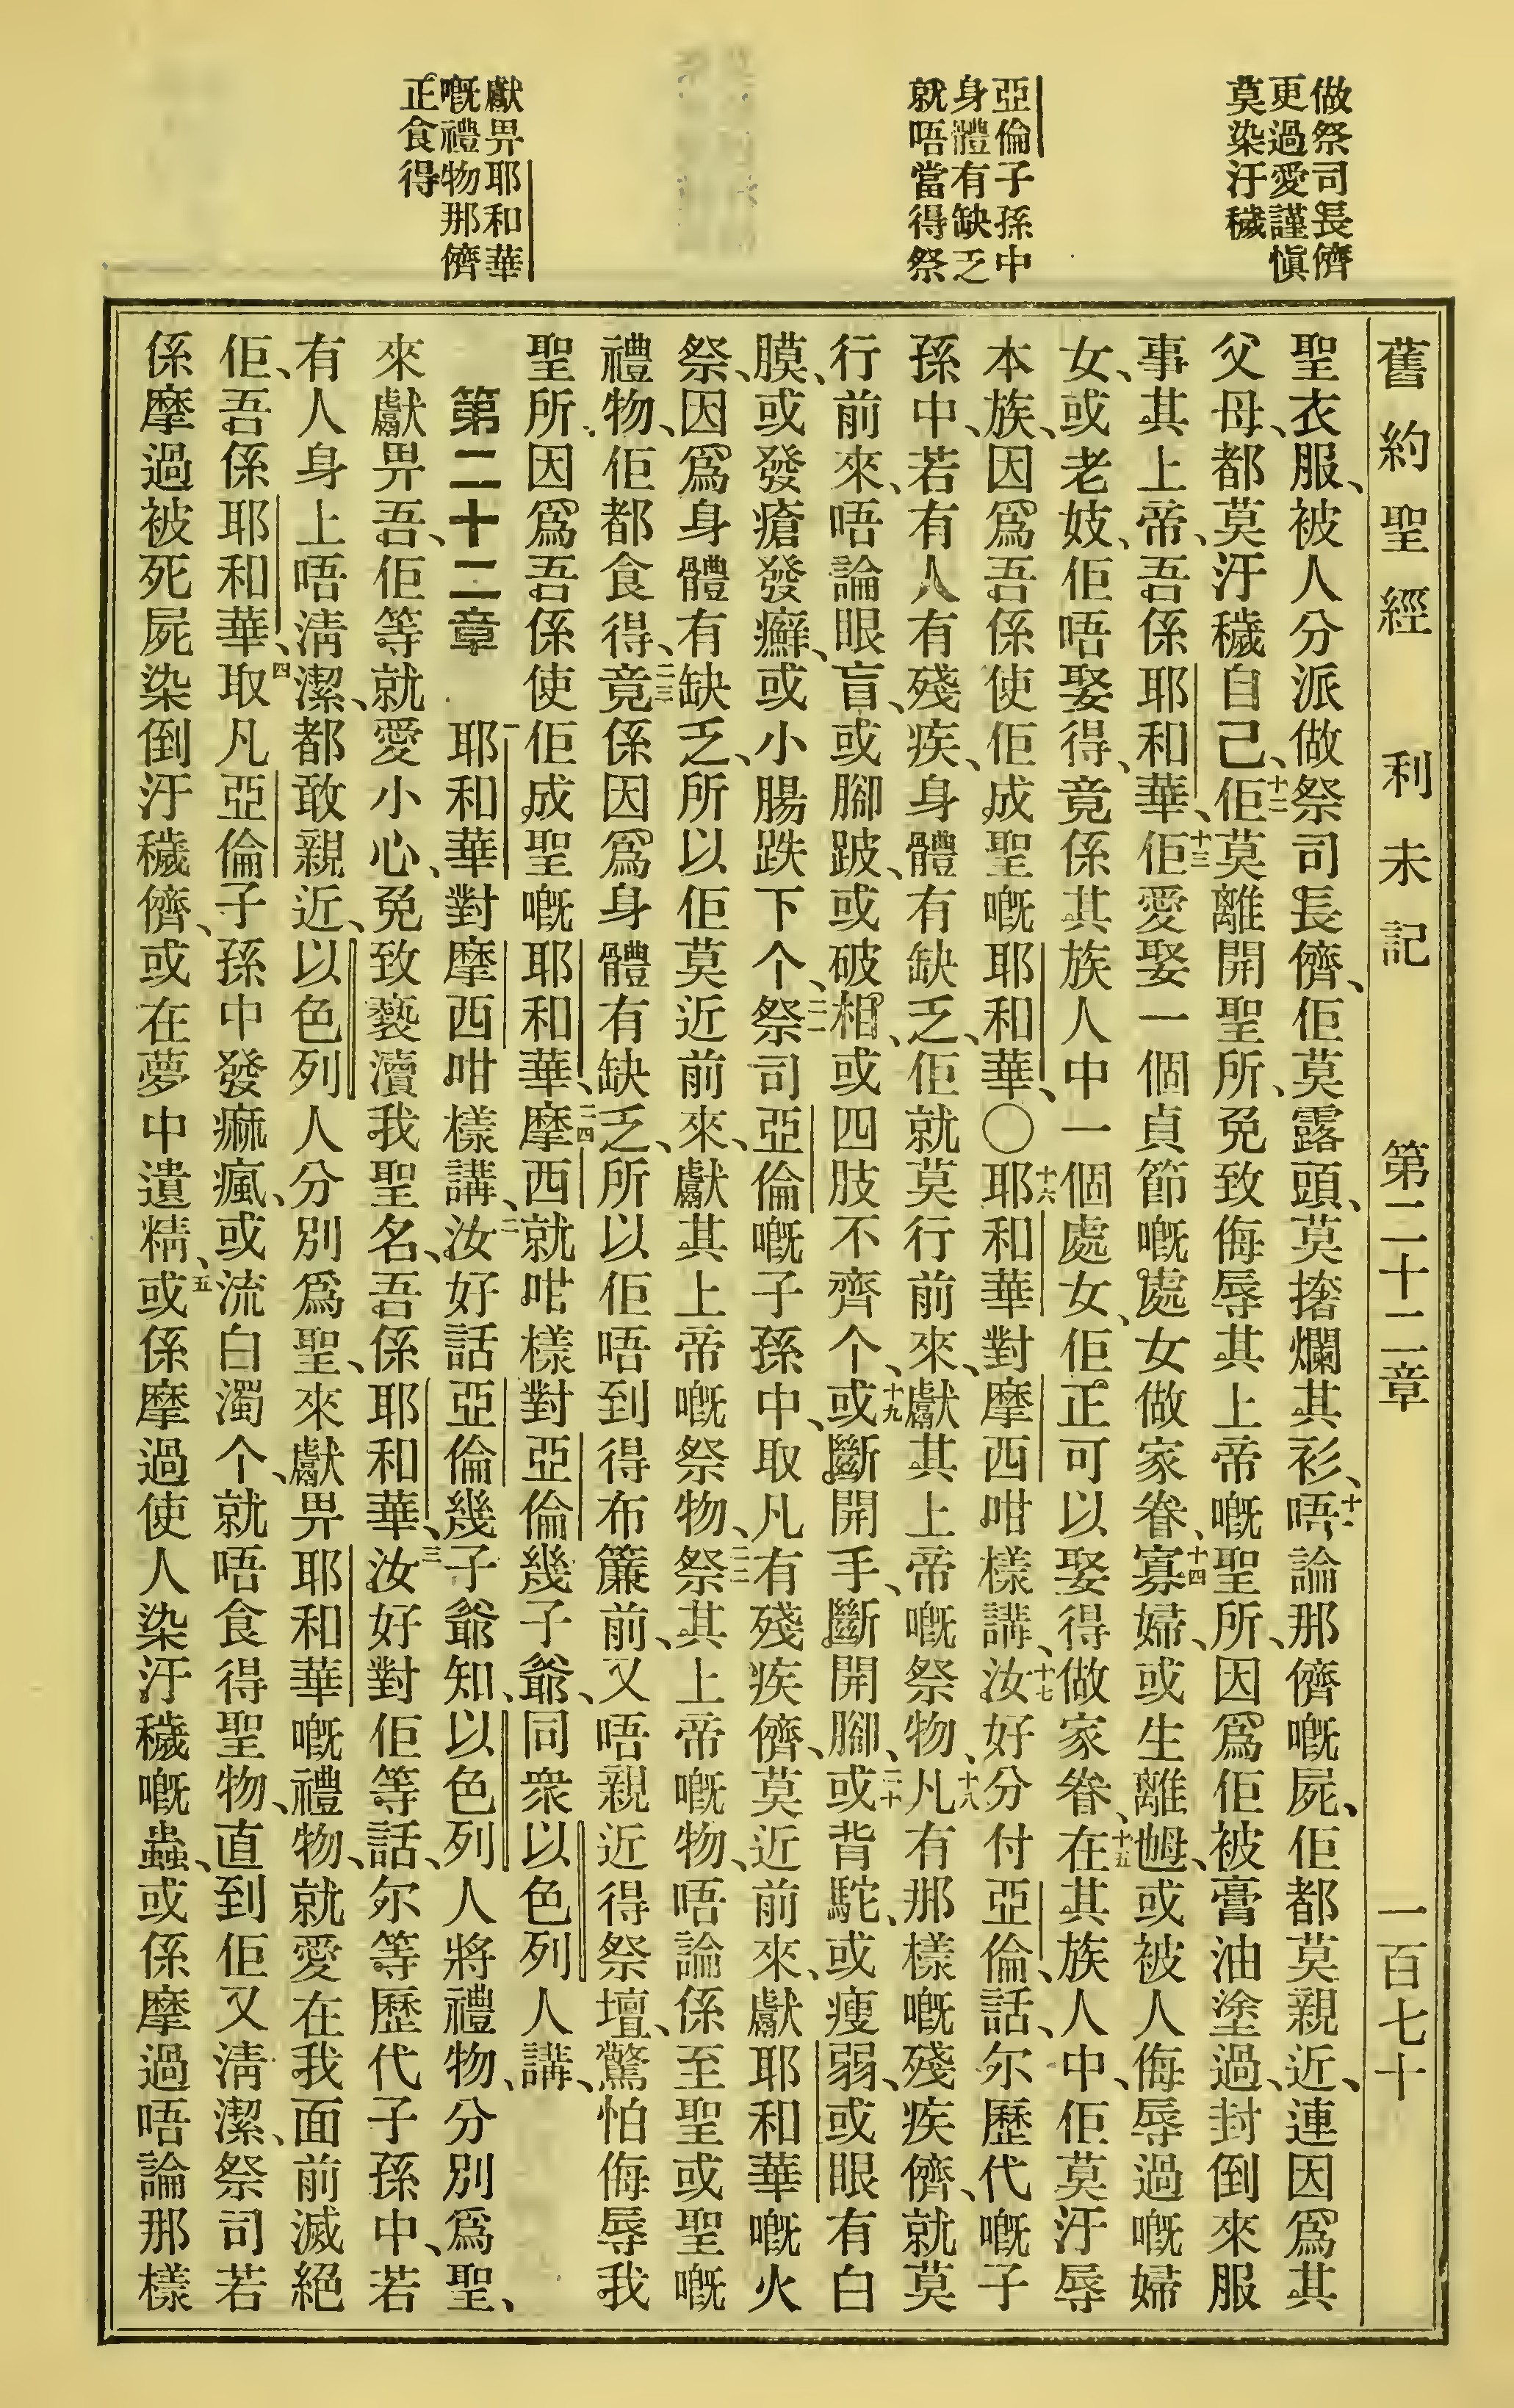 做祭司長儕
更過愛謹慎
莫染汙穢
亞倫子孫中
身體有缺乏
就唔當得祭
獻畀耶和華
嘅禮物那儕
正食得
舊約聖經 利未記 第二十二章 一百七十
聖衣服、被人分派做祭司長儕、佢莫露頭、莫撦爛其衫、十一唔論那儕嘅屍、佢都莫親近、連因爲其
父母、都莫汙穢自己、十二佢莫離開聖所、免致侮辱其上帝嘅聖所、因爲佢被膏油塗過、封倒來服
事其上帝、吾係耶和華、十三佢愛娶一個貞節嘅處女做家眷、十四寡婦、或生離乸、或被人侮辱過嘅婦
女、或老妓、佢唔娶得、竟係其族人中一個處女、佢正可以娶得做家眷、十五在其族人中、佢莫汙辱
本族、因爲吾係使佢成聖嘅耶和華、〇十六耶和華對摩西咁樣講、十七汝好分付亞倫、話、尔歷代嘅子
孫中、若有人有殘疾、身體有缺乏、佢就莫行前來、獻其上帝嘅祭物、十八凡有那樣嘅殘疾儕、就莫
行前來、唔論眼盲、或腳跛、或破相、或四肢不齊个、十九或斷開手、斷開腳、二十或背駝、或瘦弱、或眼有白
膜、或發瘡發癬、或小腸跌下个、二一祭司亞倫嘅子孫中、取凡有殘疾儕、莫近前來、獻耶和華嘅火
祭、因爲身體有缺乏、所以佢莫近前來、獻其上帝嘅祭物、二二祭其上帝嘅物、唔論係至聖或聖嘅
禮物、佢都食得、二三竟係因爲身體有缺乏、所以佢唔到得布簾前、又唔親近得祭壇、驚怕侮辱我
聖所、因爲吾係使佢成聖嘅耶和華、二四摩西就咁樣對亞倫幾子爺、同衆以色列人講、
第二十二章 一耶和華對摩西咁樣講、二汝好話亞倫幾子爺知、以色列人將禮物、分別爲聖、
來獻畀吾、佢等就愛小心、免致褻瀆我聖名、吾係耶和華、三汝好對佢等話、尔等歷代子孫中、若
有人身上唔淸潔、都敢親近、以色列人分別爲聖、來獻畀耶和華嘅禮物、就愛在我面前滅絕
佢、吾係耶和華、四取凡亞倫子孫中發痲瘋、或流白濁个、就唔食得聖物、直到佢又淸潔、祭司若
係摩過被死屍染倒汙穢儕、或在夢中遺精、五或係摩過使人染汙穢嘅蟲、或係摩過唔論那樣